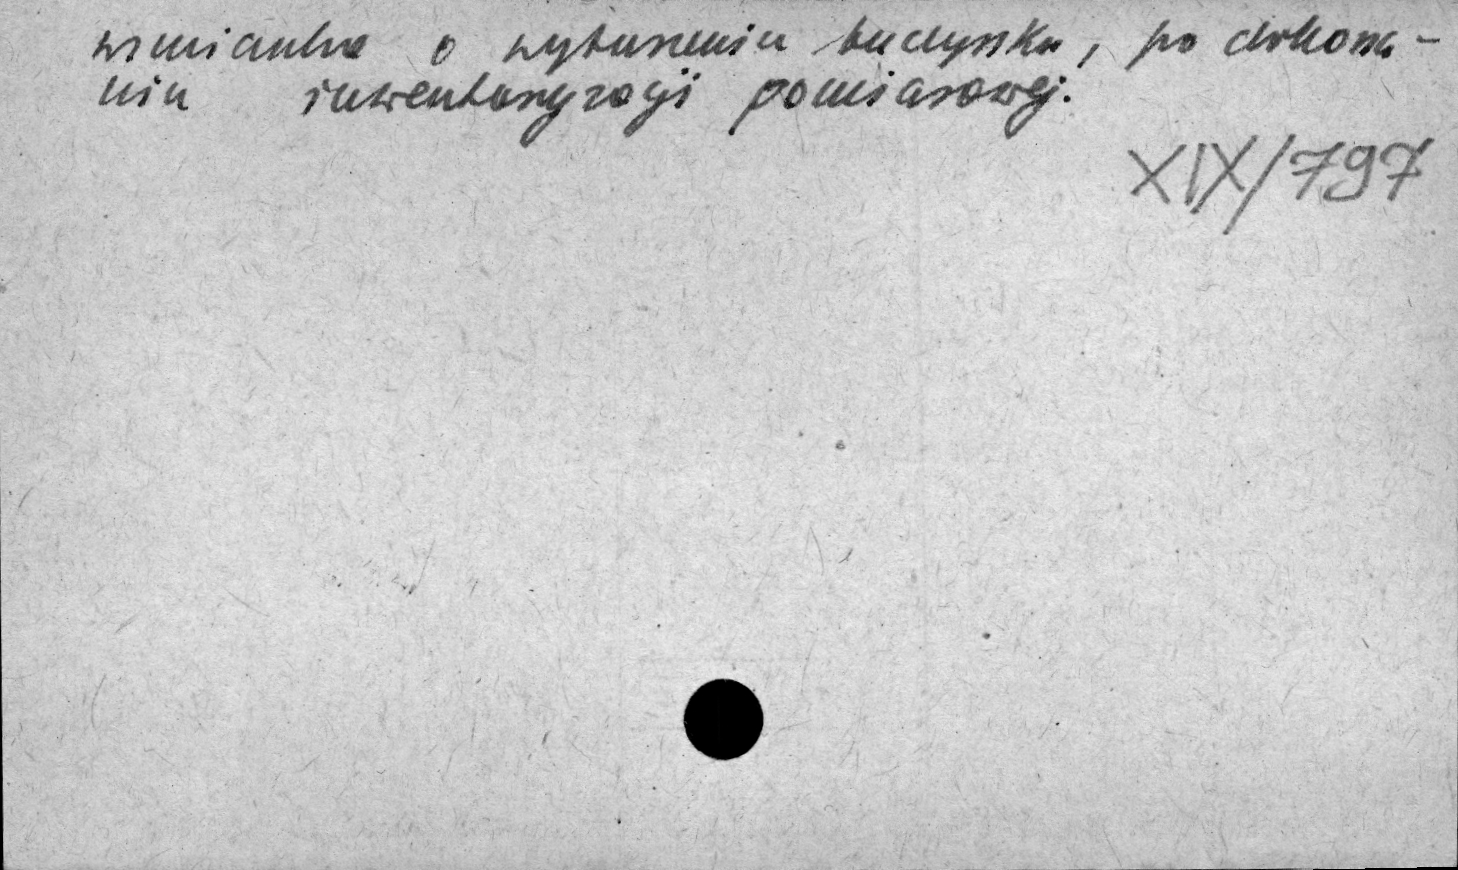 wzmianka o wyburzeniu budynku, po dokona-
niu inwentaryzacji pomiarowej.
XIX/797